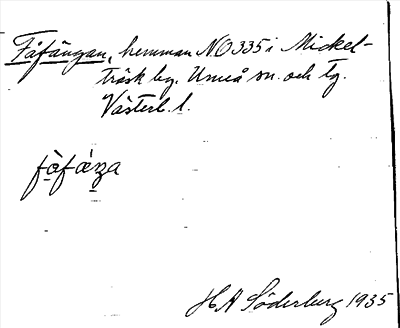 Fåfängan, hemman NO 335 i Mickel-
träsk by. Umeå sn. och tg.
Västerb. l.
H A Söderberg 1935